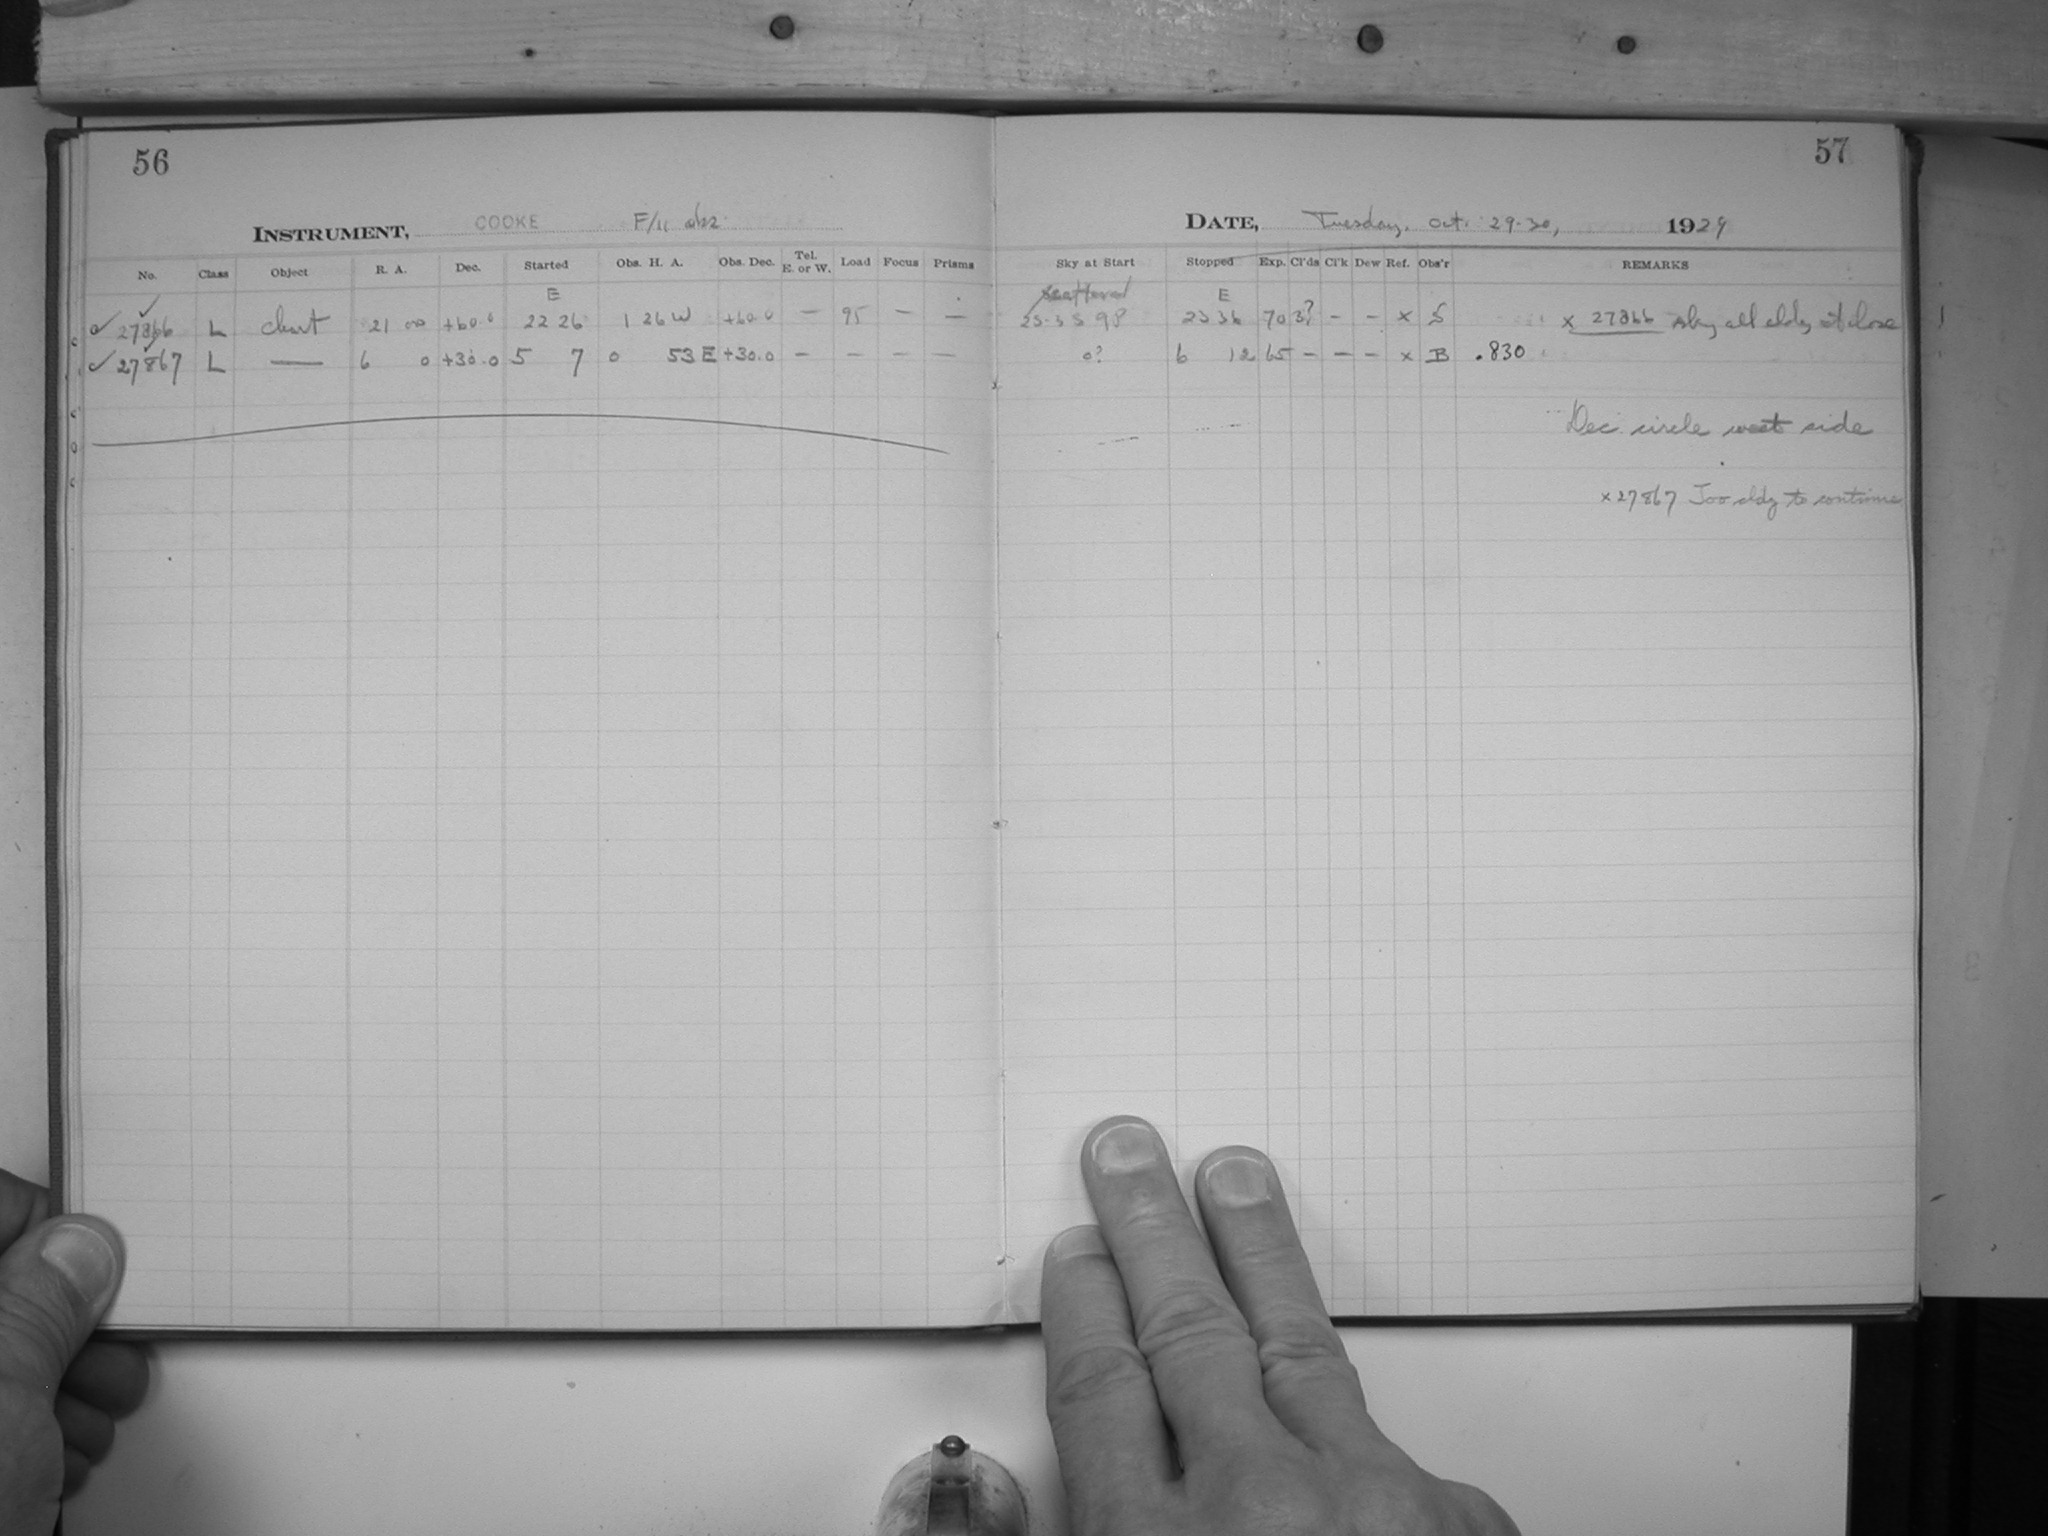 56
57
INSTRUMENT, COOKE F/11
DATE, Tuesday, Oct. 29-30, 1929
No. Class Object R. A. Dec. Started Obs. H. A. Obs. Dec. Tel. E. or W. Load Focus Prisms Sky at Start Stopped Exp. Cl'ds Cl'k Dew Ref. Obs'r REMARKS
E E
✓ 27866 L chart 21 00 +60.0 22 26 1 26 W +60.0 — 95 — — 23 36 70 3? - - x S x 27866 sky all cldy at close
✓ 27867 L — 6 0 +30.0 5 7 0 53 E +30.0 - - - - 0? 6 12 65 - - - x B .830
Dec. circle west side
x 27867 Too cldy to continue